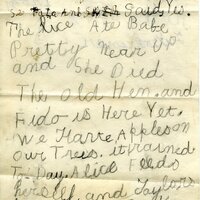 The lice Ate Babe
Pretty Near Up
and She Died
The old Hen and
Fido is Here Yet.
We Have Apples on
Our Trees. it rained
To Day. Alice Feeds
herself and Taylors